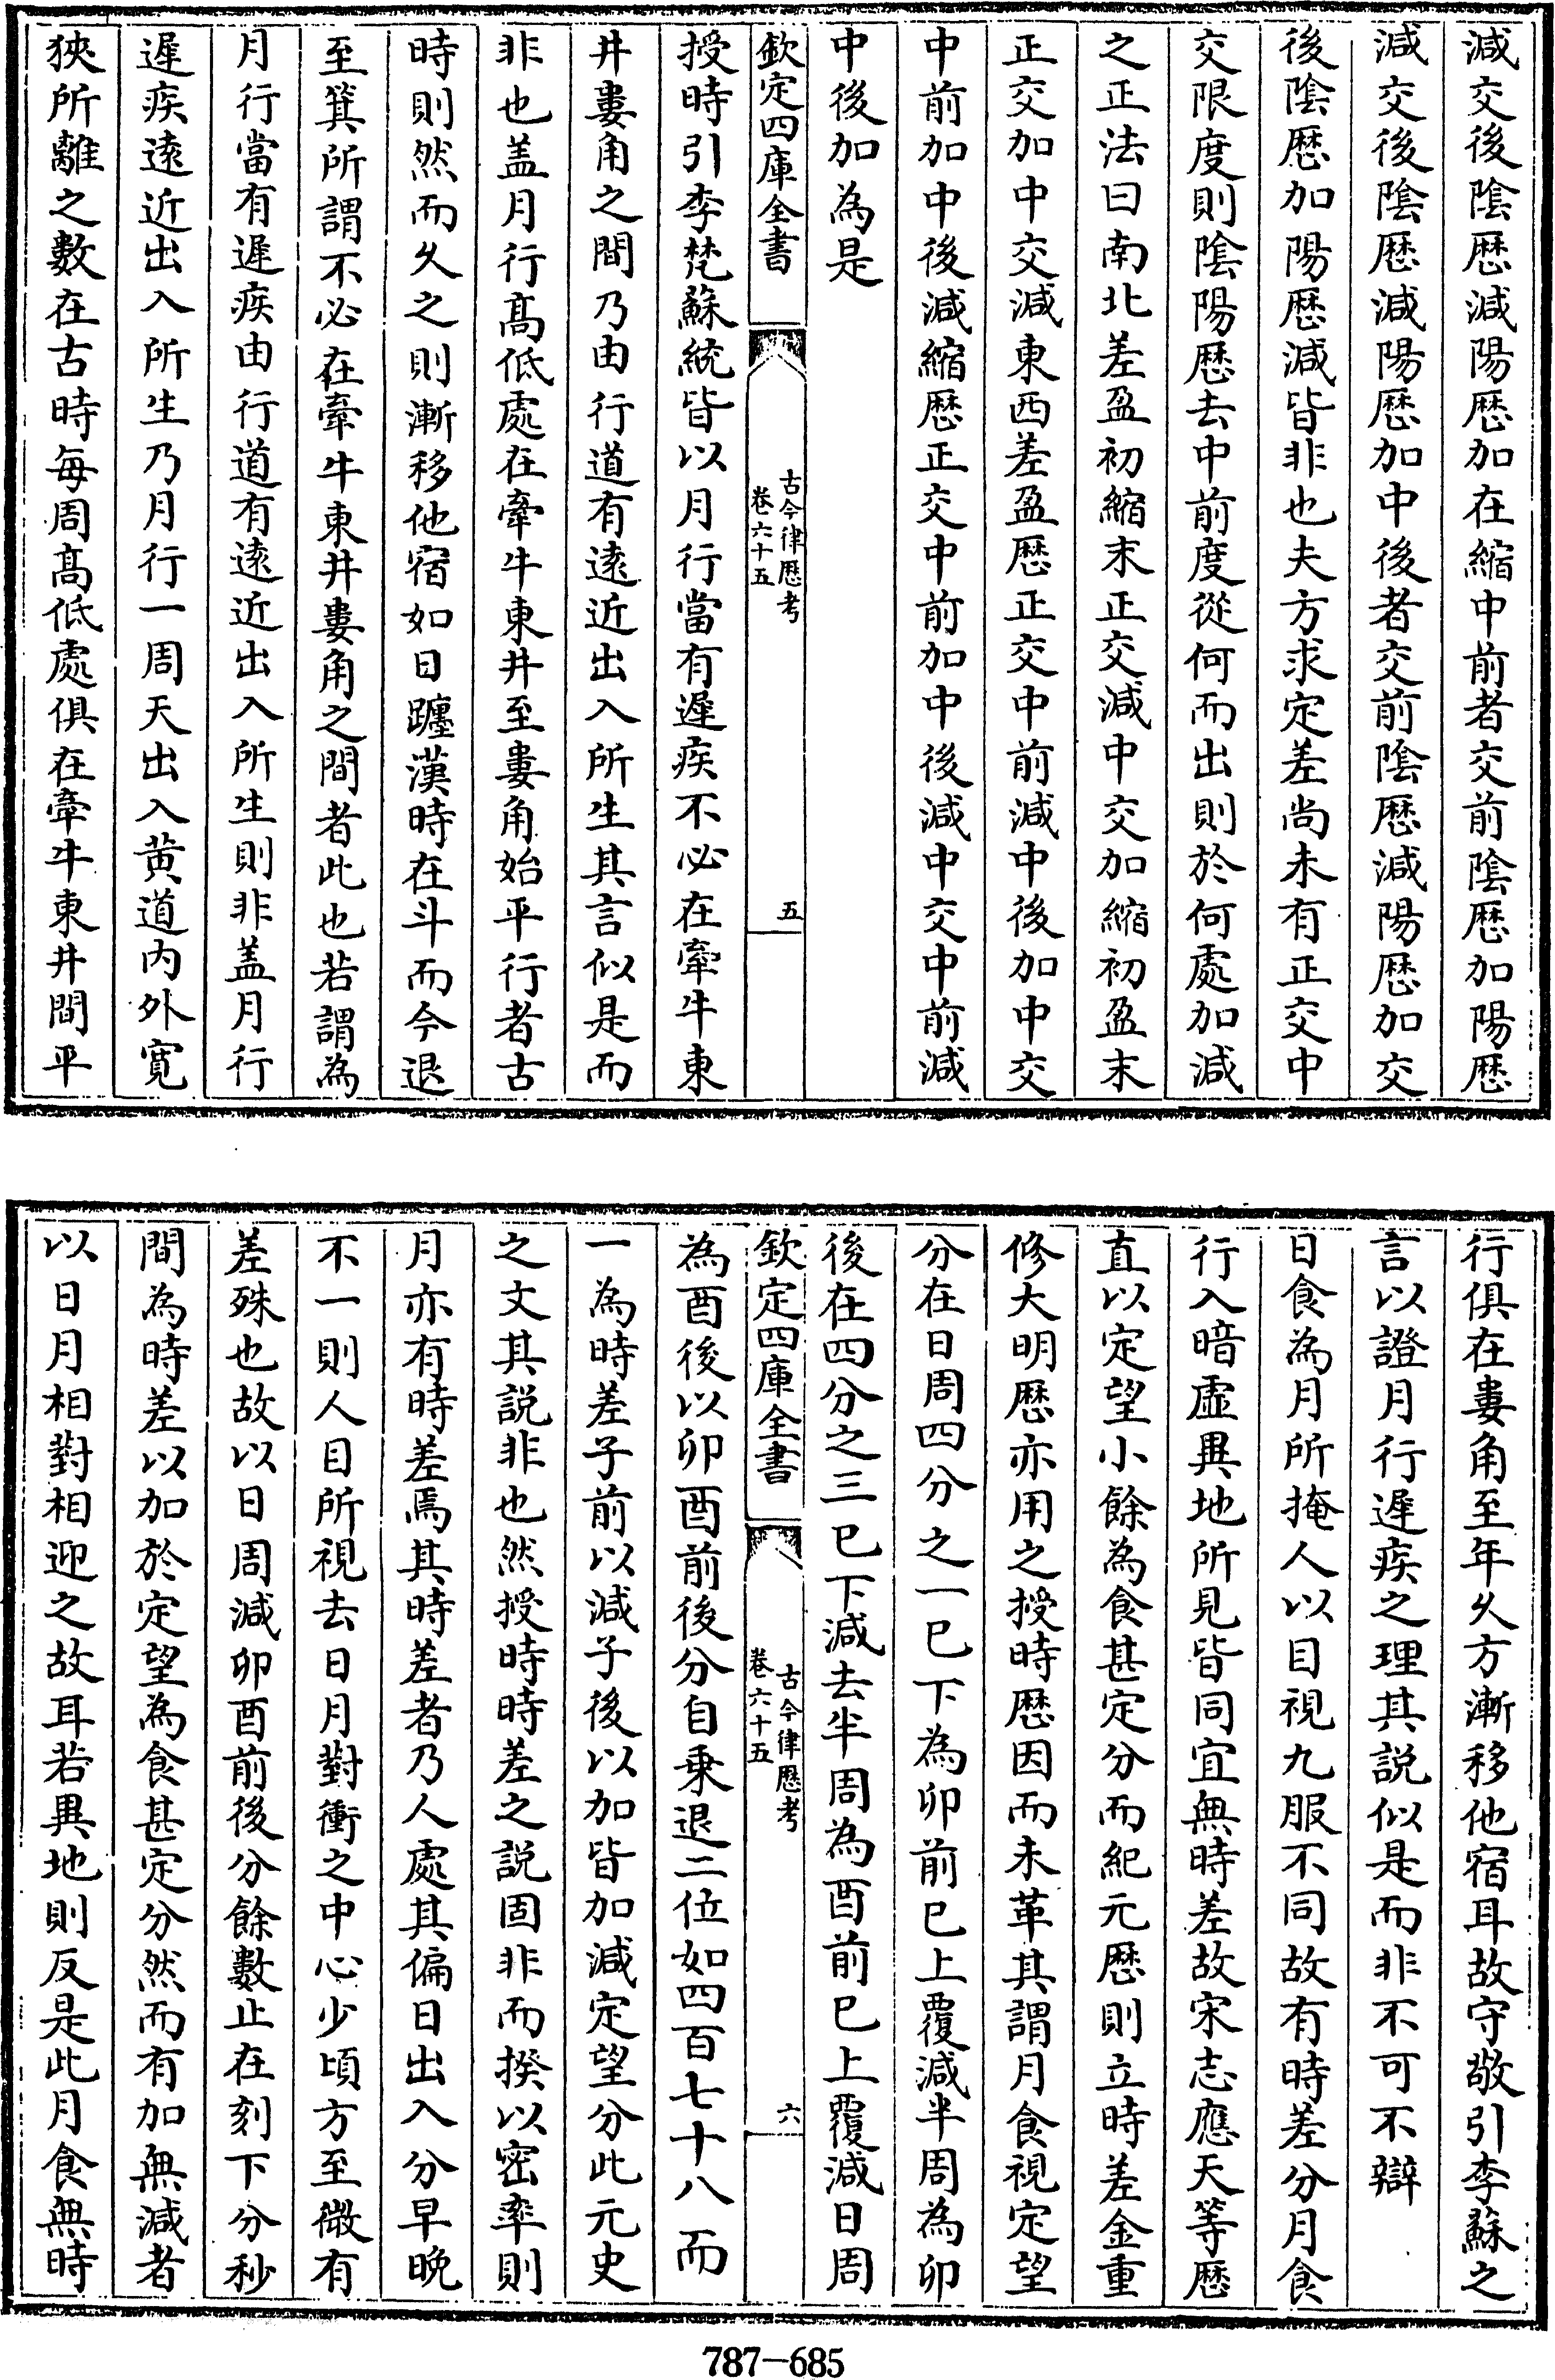 減交後陰厯減陽厯加在縮中前者交前陰厯加陽厯
減交後陰厯減陽厯加中後者交前陰厯減陽厯加交
後陰厯加陽厯減皆非也夫方求定差尚未有正交中
交限度則陰陽厯去中前度從何而出則於何處加減
之正法曰南北差盈初縮末正交減中交加縮初盈末
正交加中交減東西差盈厯正交中前減中後加中交
中前加中後減縮厯正交中前加中後減中交中前減
中後加為是
欽定四庫全書
古今律厯考
卷六十五
五
授時引李梵蘇統皆以月行當有遲疾不必在牽牛東
井婁角之間乃由行道有逺近出入所生其言似是而
非也盖月行髙低處在牽牛東井至婁角始平行者古
時則然而乆之則漸移他宿如日躔漢時在斗而今退
至箕所謂不必在牽牛東井婁角之間者此也若謂為
月行當有遲疾由行道有逺近出入所生則非盖月行
遲疾逺近出入所生乃月行一周天出入黄道内外寛
狹所離之數在古時每周髙低處俱在牽牛東井間平
行俱在婁角至年乆方漸移他宿耳故守敬引李蘇之
言以證月行遲疾之理其説似是而非不可不辯
日食為月所掩人以目視九服不同故有時差分月食
行入暗虛異地所見皆同宜無時差故宋志應天等厯
直以定望小餘為食甚定分而紀元厯則立時差金重
修大明厯亦用之授時厯因而未革其謂月食視定望
分在日周四分之一巳下為卯前巳上覆減半周為卯
後在四分之三巳下減去半周為酉前巳上覆減日周
欽定四庫全書
古今律厯考
卷六十五
六
為酉後以卯酉前後分自乗退二位如四百七十八而
一為時差子前以減子後以加皆加減定望分此元史
之文其説非也然授時時差之説固非而揆以密率則
月亦有時差焉其時差者乃人處其偏日出入分早晩
不一則人目所視去日月對衝之中心少頃方至微有
差殊也故以日周減卯酉前後分餘數止在刻下分秒
間為時差以加於定望為食甚定分然而有加無減者
以日月相對相迎之故耳若異地則反是此月食無時
787-685